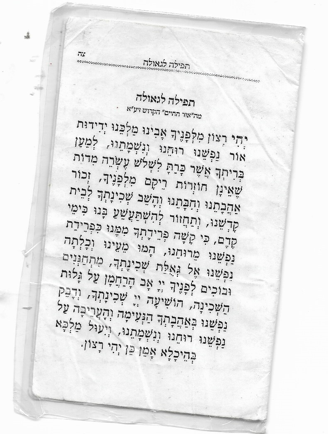 תפילה לגאולה
צה
תפילה לגאולה
מה״אור החיים״ הקדוש זיע״א
יְהִי רָצוֹן מִלְּפָנֶיךָ אָבִינוּ מַלְכֵּנוּ יְדִידוּת
אוֹר נַפְשֵׁנוּ רוּחֵנוּ וְנִשְׁמָתֵנוּ, לְמַעַן
בְּרִיתְךָ אֲשֶׁר כָּרַתָּ לִשְׁלֹשׁ עֶשְׂרֵה מִדּוֹת
שֶׁאֵינָן חוֹזְרוֹת רֵיקָם מִלְּפָנֶיךָ, זְכוֹר
אַהֲבָתֵנוּ וְחִבָּתֵנוּ וְהָשֵׁב שְׁכִינָתְךָ לְבֵית
קָדְשֵׁנוּ, וְתַחֲזוֹר לְהִשְׁתַּעֲשֵׁעַ בָּנוּ כִּימֵי
קֶדֶם, כִּי קָשָׁה פְּרֵידָתְךָ מִמֶּנּוּ כִּפְרֵידַת
נַפְשֵׁנוּ מֵרוּחֵנוּ, הָמוּ מֵעֵינוּ וְכָלְתָה
נַפְשֵׁנוּ אֶל גְּאֻלַּת שְׁכִינָתֶךָ, מִתְחַנְּנִים
וּבוֹכִים לְפָנֶיךָ יְיָ אָב הָרַחֲמָן עַל גָּלוּת
הַשְּׁכִינָה, הוֹשִׁיעָה יְיָ שְׁכִינָתֶךָ, וְדַבֵּק
נַפְשֵׁנוּ בְּאַהֲבָתְךָ הַנְּעִימָה וְהָעֲרֵיבָה עַל
נַפְשֵׁנוּ רוּחֵנוּ וְנִשְׁמָתֵנוּ, וְיֵעוּל מַלְכָּא
בְּהֵיכָלָא אָמֵן כֵּן יְהִי רָצוֹן.